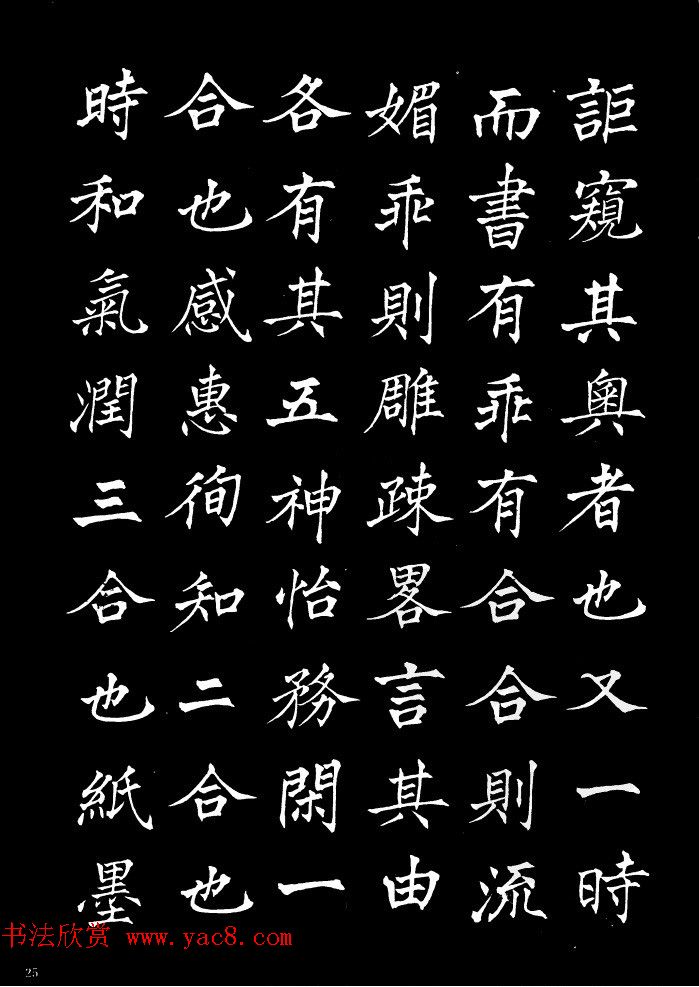 詎窺其奧者也又一時
而書有乖有合合則流
媚乖則雕疎畧言其由
各有其五神怡務閑一
合也感惠徇知二合也
時和氣潤三合也紙墨
书法欣赏 www.yac8.com
25